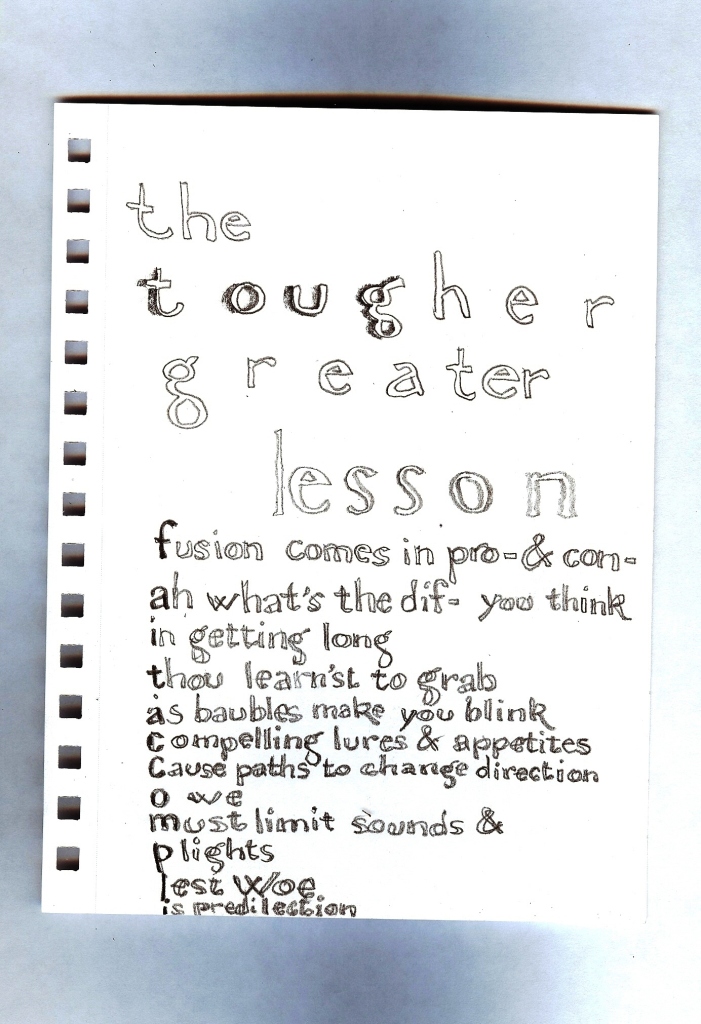 the
tougher
greater
lesson
fusion comes in pro-& con-
ah what's the dif- you think
in getting long
thou learn'st to grab
as baubles make you blink
compelling lures & appetites
Cause paths to change direction
o we
must limit sounds &
plights
lest w/oe
is predilection